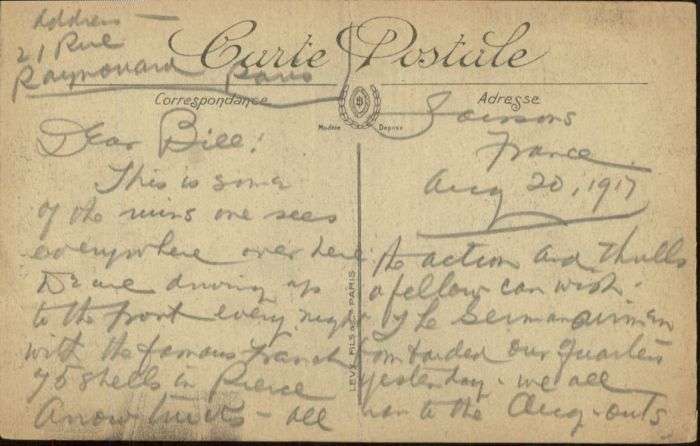 Address —
21 Rue
Raynouard Paris
Carte Postale
Correspondance
Adresse
Modèle Déposé
Soissons
France
Aug 20, 1917
Dear Bill:
This is some
of the ruins one sees
everywhere over here
We are driving up
to the front every night
with the famous French
75 shells in Pierce
Arrow trucks — all
LEVY FILS & Cie PARIS
the action and thrills
a fellow can wish.
The German airmen
bombarded our quarters
yesterday - we all
ran to the dug-outs